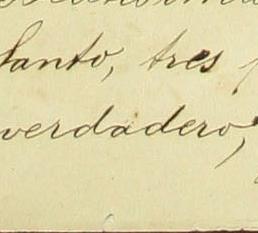 Santo, tres
verdadero,